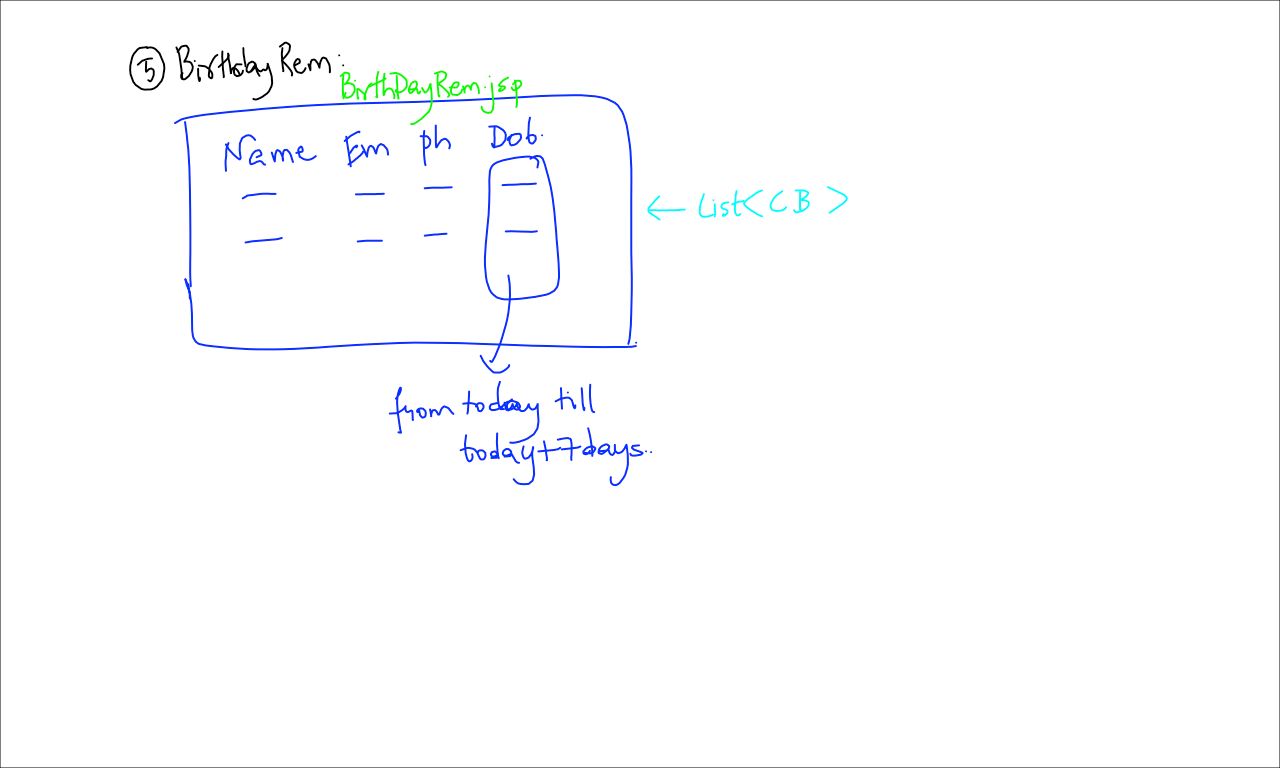 5 Birthday Rem:
BirthDayRem.jsp
Name Em ph Dob.
← List<CB>
from today till
today+7days..